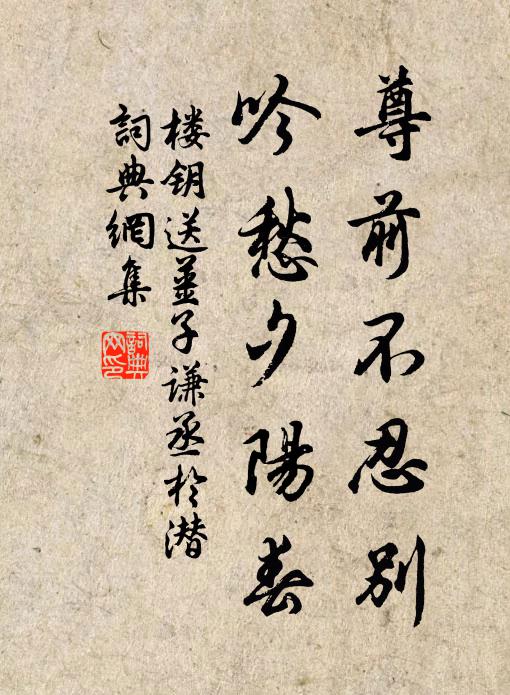 尊前不忍别
吟愁夕陽春
楼钥送姜子谦丞於潜
詞典網集
詞典網印